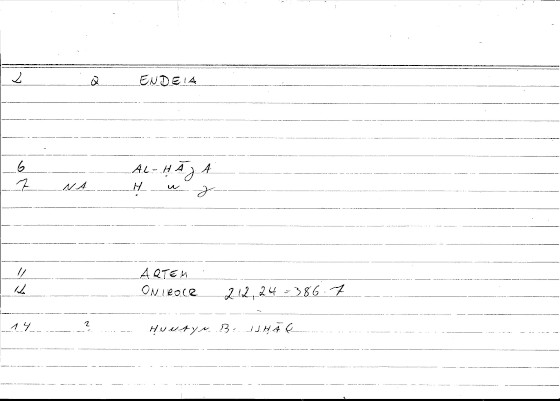 2 Q ENDEIA
6 AL-ḤĀJA
7 NA Ḥ W J
11 ARTEM
12 ONIROCR 212,24 = 386.7
14 ? ḤUNAYN B. ISḤĀQ